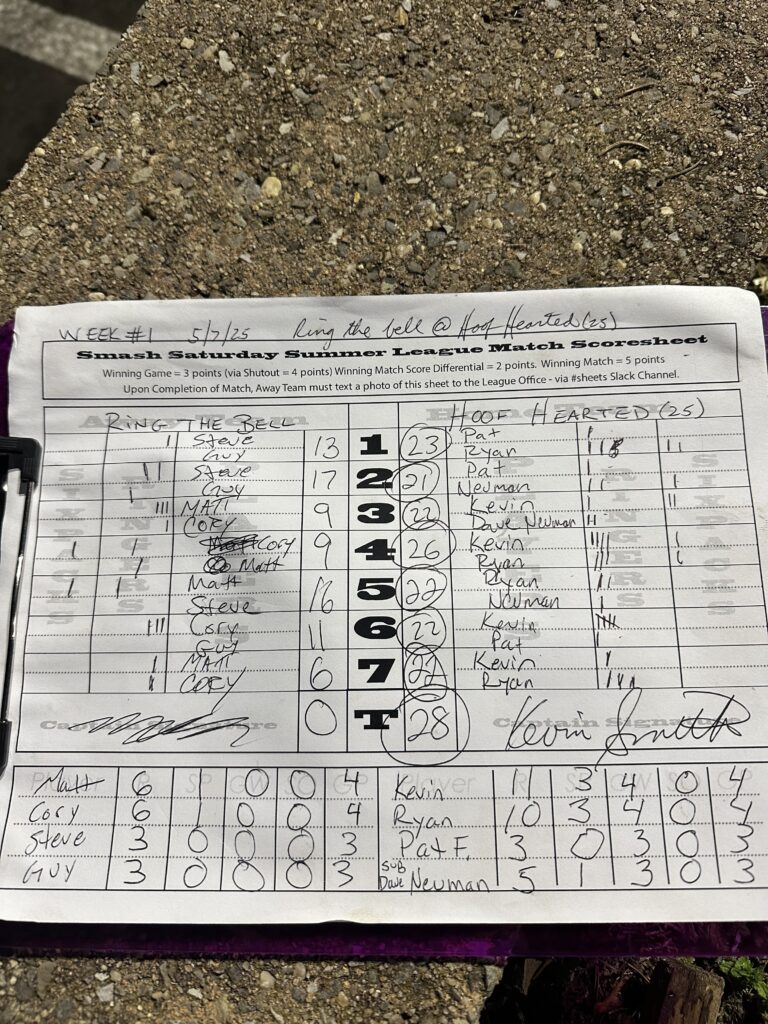 WEEK #1 5/7/25 Ring the bell @ Hoof Hearted (25)
Smash Saturday Summer League Match Scoresheet
Winning Game = 3 points (via Shutout = 4 points) Winning Match Score Differential = 2 points. Winning Match = 5 points
Upon Completion of Match, Away Team must text a photo of this sheet to the League Office - via #sheets Slack Channel.
RING THE BELL HOOF HEARTED (25)
Steve 13 1 23 Pat
Guy Ryan
Steve 17 2 21 Pat
Guy Neuman
MATT 9 3 22 Kevin
CORY Dave Neuman
Cory 9 4 26 Kevin
Matt Ryan
Matt 16 5 22 Ryan
Steve Neuman
Cory 11 6 22 Kevin
Guy Pat
MATT 6 7 22 Kevin
CORY Ryan
0 T 28
Captain Signature Captain Signature
Kevin Smith
Player R SP GW SO GP Player R SP GW SO GP
Matt 6 0 0 4 Kevin 11 3 4 0 4
Cory 6 1 0 0 4 Ryan 10 3 4 0 4
Steve 3 0 0 0 3 Pat F. 3 0 3 0 3
GUY 3 0 0 0 3 Sub Dave Neuman 5 1 3 0 3